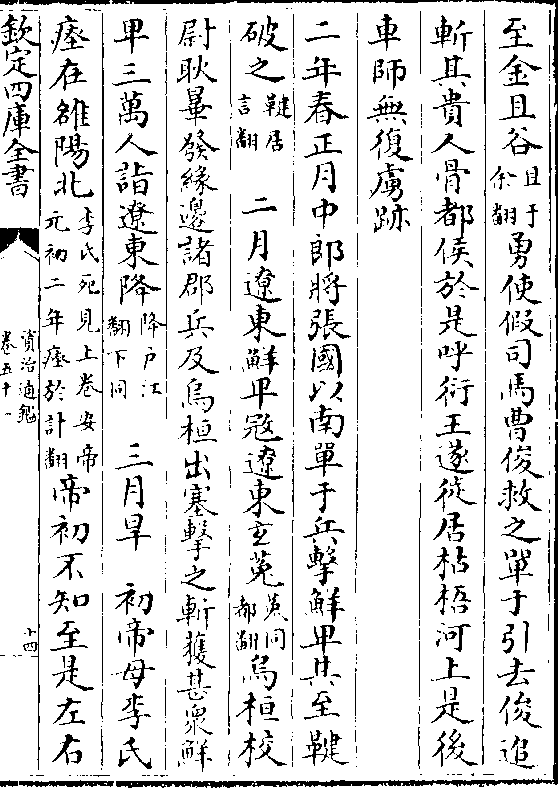 至金且谷且子余翻勇使假司馬曹俊救之單于引去俊追
斬其貴人骨都侯於是呼衍王遂徙居枯梧河上是後
車師無復虜跡
二年春正月中郎將張國以南單于兵擊鮮卑其至鞬
破之鞬居言翻 二月遼東鮮卑寇遼東玄菟菟同都翻烏桓校
尉耿曅發緣邊諸郡兵及烏桓出塞擊之斬獲甚衆鮮
卑三萬人詣遼東降降户江翻下同 三月旱 初帝母李氏
瘞在雒陽北李氏死見上卷安帝元初二年瘞於計翻帝初不知至是左右
欽定四庫全書
資治通鑑
卷五十一
十四